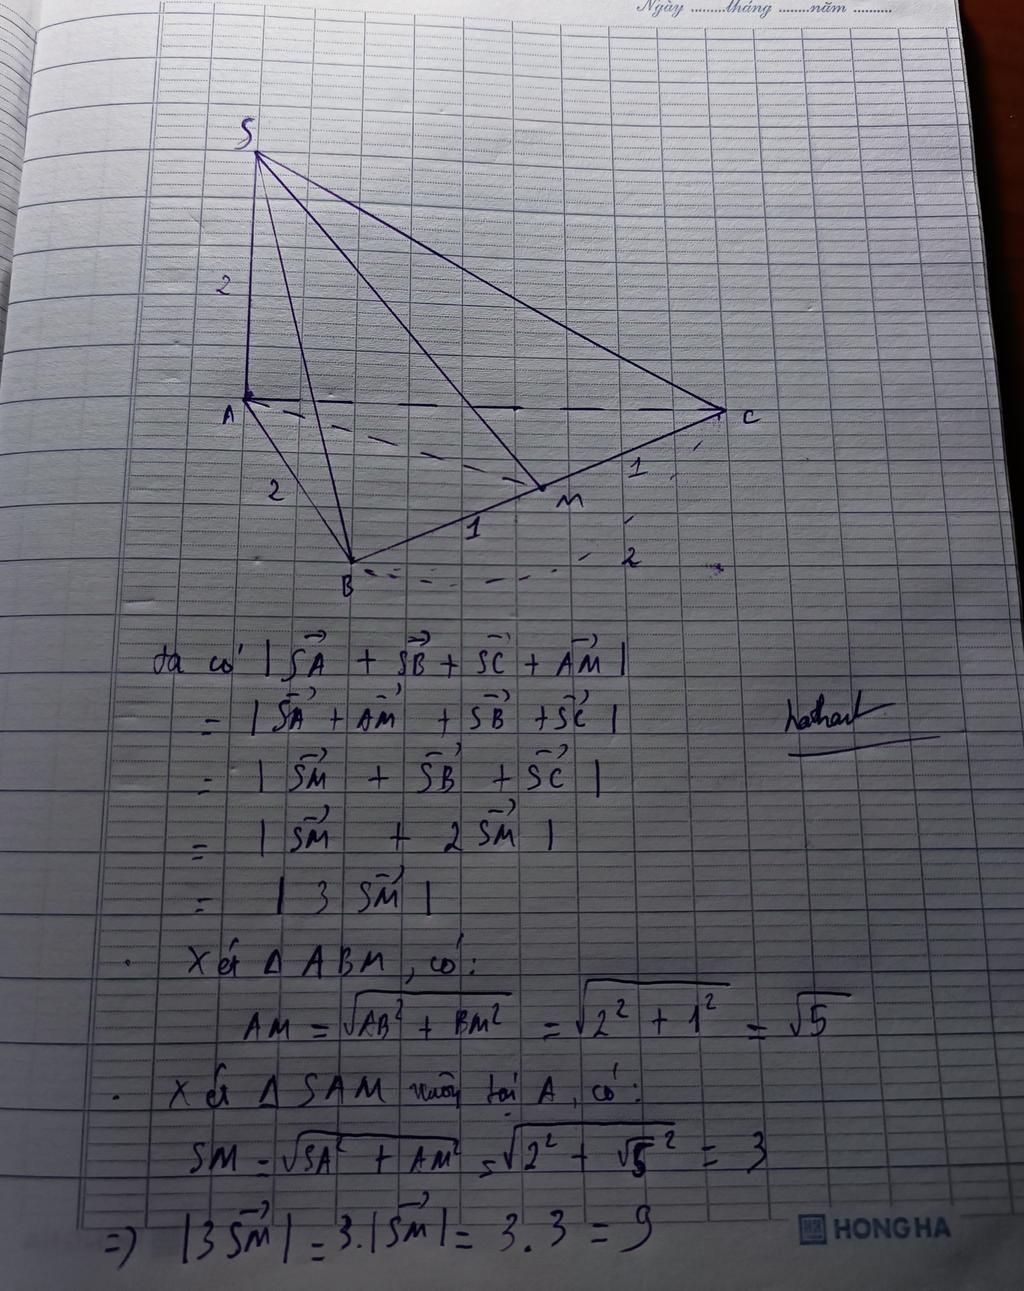 Ngày ........tháng ........năm ..........
S
2
A
C
2
1
M
1
2
B
ta có | SA⃗ + SB⃗ + SC⃗ + AM⃗ |
= | SA⃗ + AM⃗ + SB⃗ + SC⃗ |
= | SM⃗ + SB⃗ + SC⃗ |
= | SM⃗ + 2 SM⃗ |
= | 3 SM⃗ |
. Xét Δ ABM, có:
AM = √(AB² + BM²) = √(2² + 1²) = √5
. Xét Δ SAM vuông tại A, có:
SM = √(SA² + AM²) = √(2² + √5²) = 3
=> |3 SM⃗| = 3.|SM⃗| = 3 . 3 = 9
HONG HA